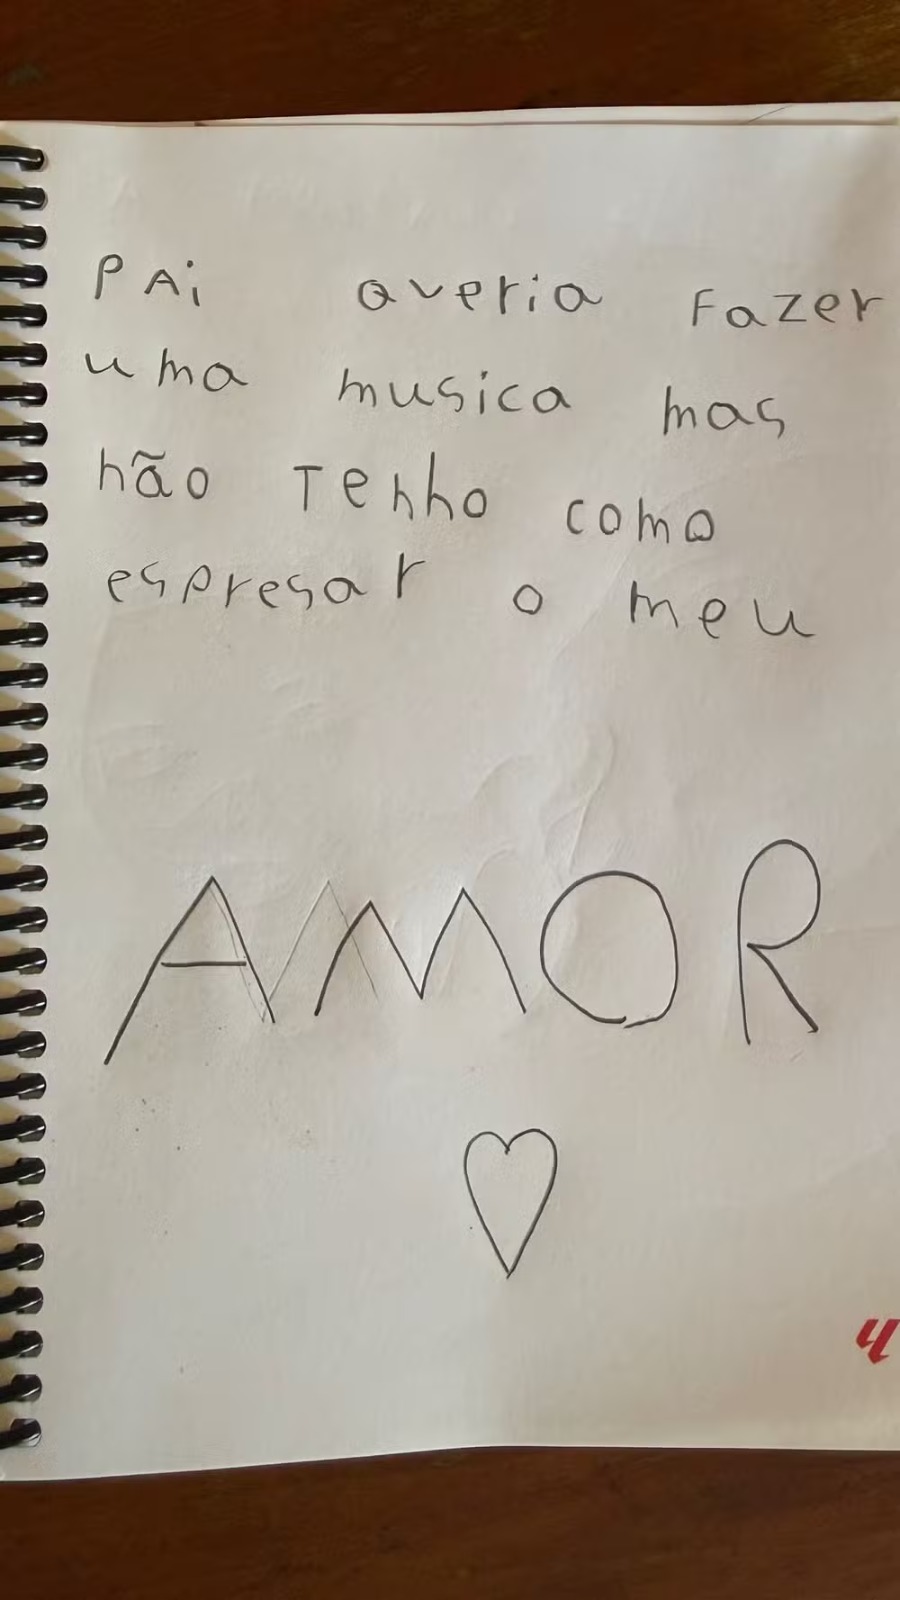 PAi averia Fazer
uma musica mas
não Tenho como
espresar o meu
AMOR